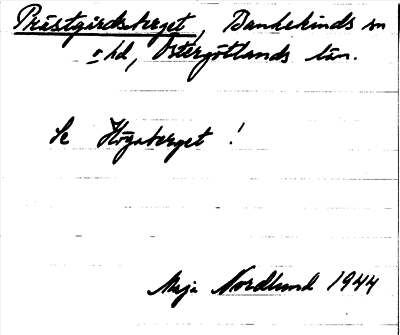 Prästgårdsberget, Bankekinds sn
o hd, Östergötlands län.
Se Högaberget !
Maja Nordlund 1944